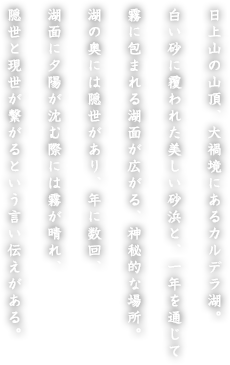 日上山の山頂、大禍境にあるカルデラ湖。
白い砂に覆われた美しい砂浜と、一年を通じて
霧に包まれる湖面が広がる、神秘的な場所。
湖の奥には隠世があり、年に数回
湖面に夕陽が沈む際には霧が晴れ、
隠世と現世が繋がるという言い伝えがある。